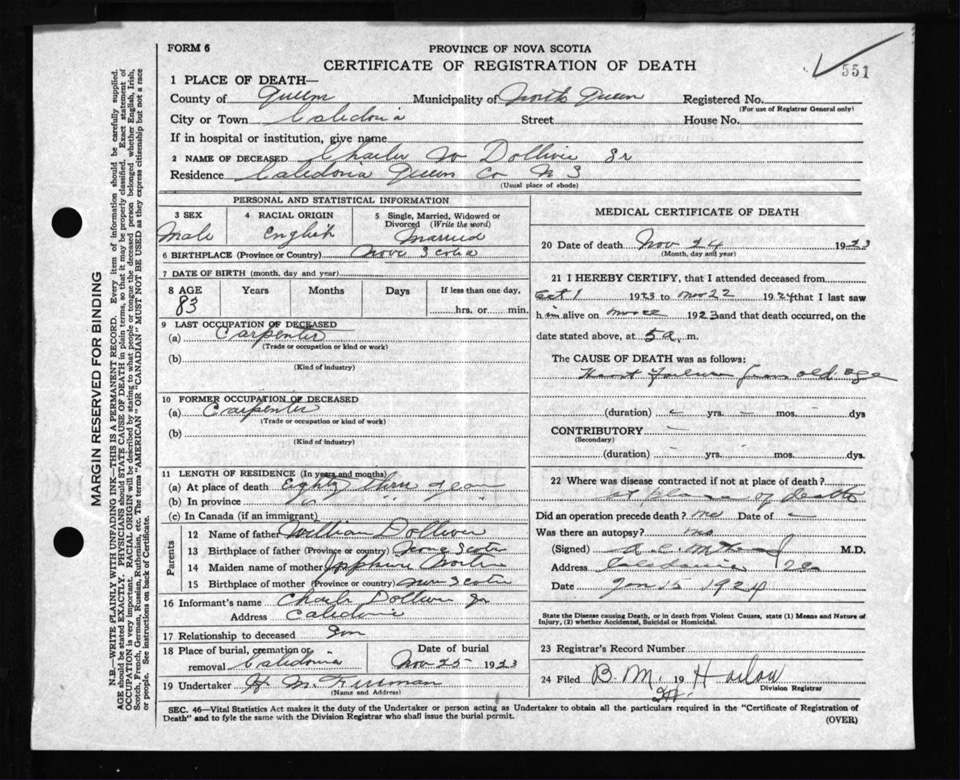 FORM 6
PROVINCE OF NOVA SCOTIA
CERTIFICATE OF REGISTRATION OF DEATH
551
1 PLACE OF DEATH—
County of Queens Municipality of North Queens Registered No.
(For use of Registrar General only)
City or Town Caledonia Street House No.
If in hospital or institution, give name
2 NAME OF DECEASED Charles W Dolliver Sr
Residence Caledonia Queens Co N S
(Usual place of abode)
PERSONAL AND STATISTICAL INFORMATION
3 SEX
Male
4 RACIAL ORIGIN
English
5 Single, Married, Widowed or Divorced (Write the word)
Married
6 BIRTHPLACE (Province or Country) Nova Scotia
7 DATE OF BIRTH (month, day and year)
8 AGE Years Months Days If less than one day,
83 hrs. or min.
9 LAST OCCUPATION OF DECEASED
(a) Carpenter
(Trade or occupation or kind or work)
(b)
(Kind of industry)
10 FORMER OCCUPATION OF DECEASED
(a) Carpenter
(Trade or occupation or kind of work)
(b)
(Kind of industry)
11 LENGTH OF RESIDENCE (In years and months)
(a) At place of death Eighty three years
(b) In province " "
(c) In Canada (if an immigrant)
Parents
12 Name of father William Dolliver
13 Birthplace of father (Province or country) Nova Scotia
14 Maiden name of mother
15 Birthplace of mother (Province or country) Nova Scotia
16 Informant's name Charles Dolliver Jr
Address Caledonia
17 Relationship to deceased Son
18 Place of burial, cremation or removal Caledonia
Date of burial
Nov 25 1923
19 Undertaker H M
(Name and Address)
MEDICAL CERTIFICATE OF DEATH
20 Date of death Nov 24 1923
(Month, day and year)
21 I HEREBY CERTIFY, that I attended deceased from
Oct 1 1923 to Nov 22 1924 that I last saw
him alive on Nov 22 1923 and that death occurred, on the
date stated above, at 5 a. m.
The CAUSE OF DEATH was as follows:
Heart Failure from old age
(duration) – yrs. – mos. – dys
CONTRIBUTORY –
(Secondary)
(duration) – yrs. – mos. – dys.
22 Where was disease contracted if not at place of death?
at place of death
Did an operation precede death? no Date of –
Was there an autopsy? no
(Signed) M.D.
Address Caledonia
Date Jan 15 1924
State the Disease causing Death, or in death from Violent Causes, state (1) Means and Nature of
Injury, (2) whether Accidental, Suicidal or Homicidal.
23 Registrar's Record Number
24 Filed B. M. 19 Harlow
Division Registrar
SEC. 46—Vital Statistics Act makes it the duty of the Undertaker or person acting as Undertaker to obtain all the particulars required in the "Certificate of Registration of
Death" and to fyle the same with the Division Registrar who shall issue the burial permit.
(OVER)
MARGIN RESERVED FOR BINDING
N.B.—WRITE PLAINLY WITH UNFADING INK—THIS IS A PERMANENT RECORD. Every item of information should be carefully supplied.
AGE should be stated EXACTLY. PHYSICIANS should STATE CAUSE OF DEATH in plain terms, so that it may be properly classified. Exact statement of
OCCUPATION is very important. RACIAL ORIGIN will be described by stating to what people or tongue the deceased person belonged whether English, Irish,
Scotch, French, German, Russian, Ruthenian, etc. The terms "AMERICAN" OR "CANADIAN" MUST NOT BE USED as they express citizenship but not a race
or people. See instructions on back of Certificate.